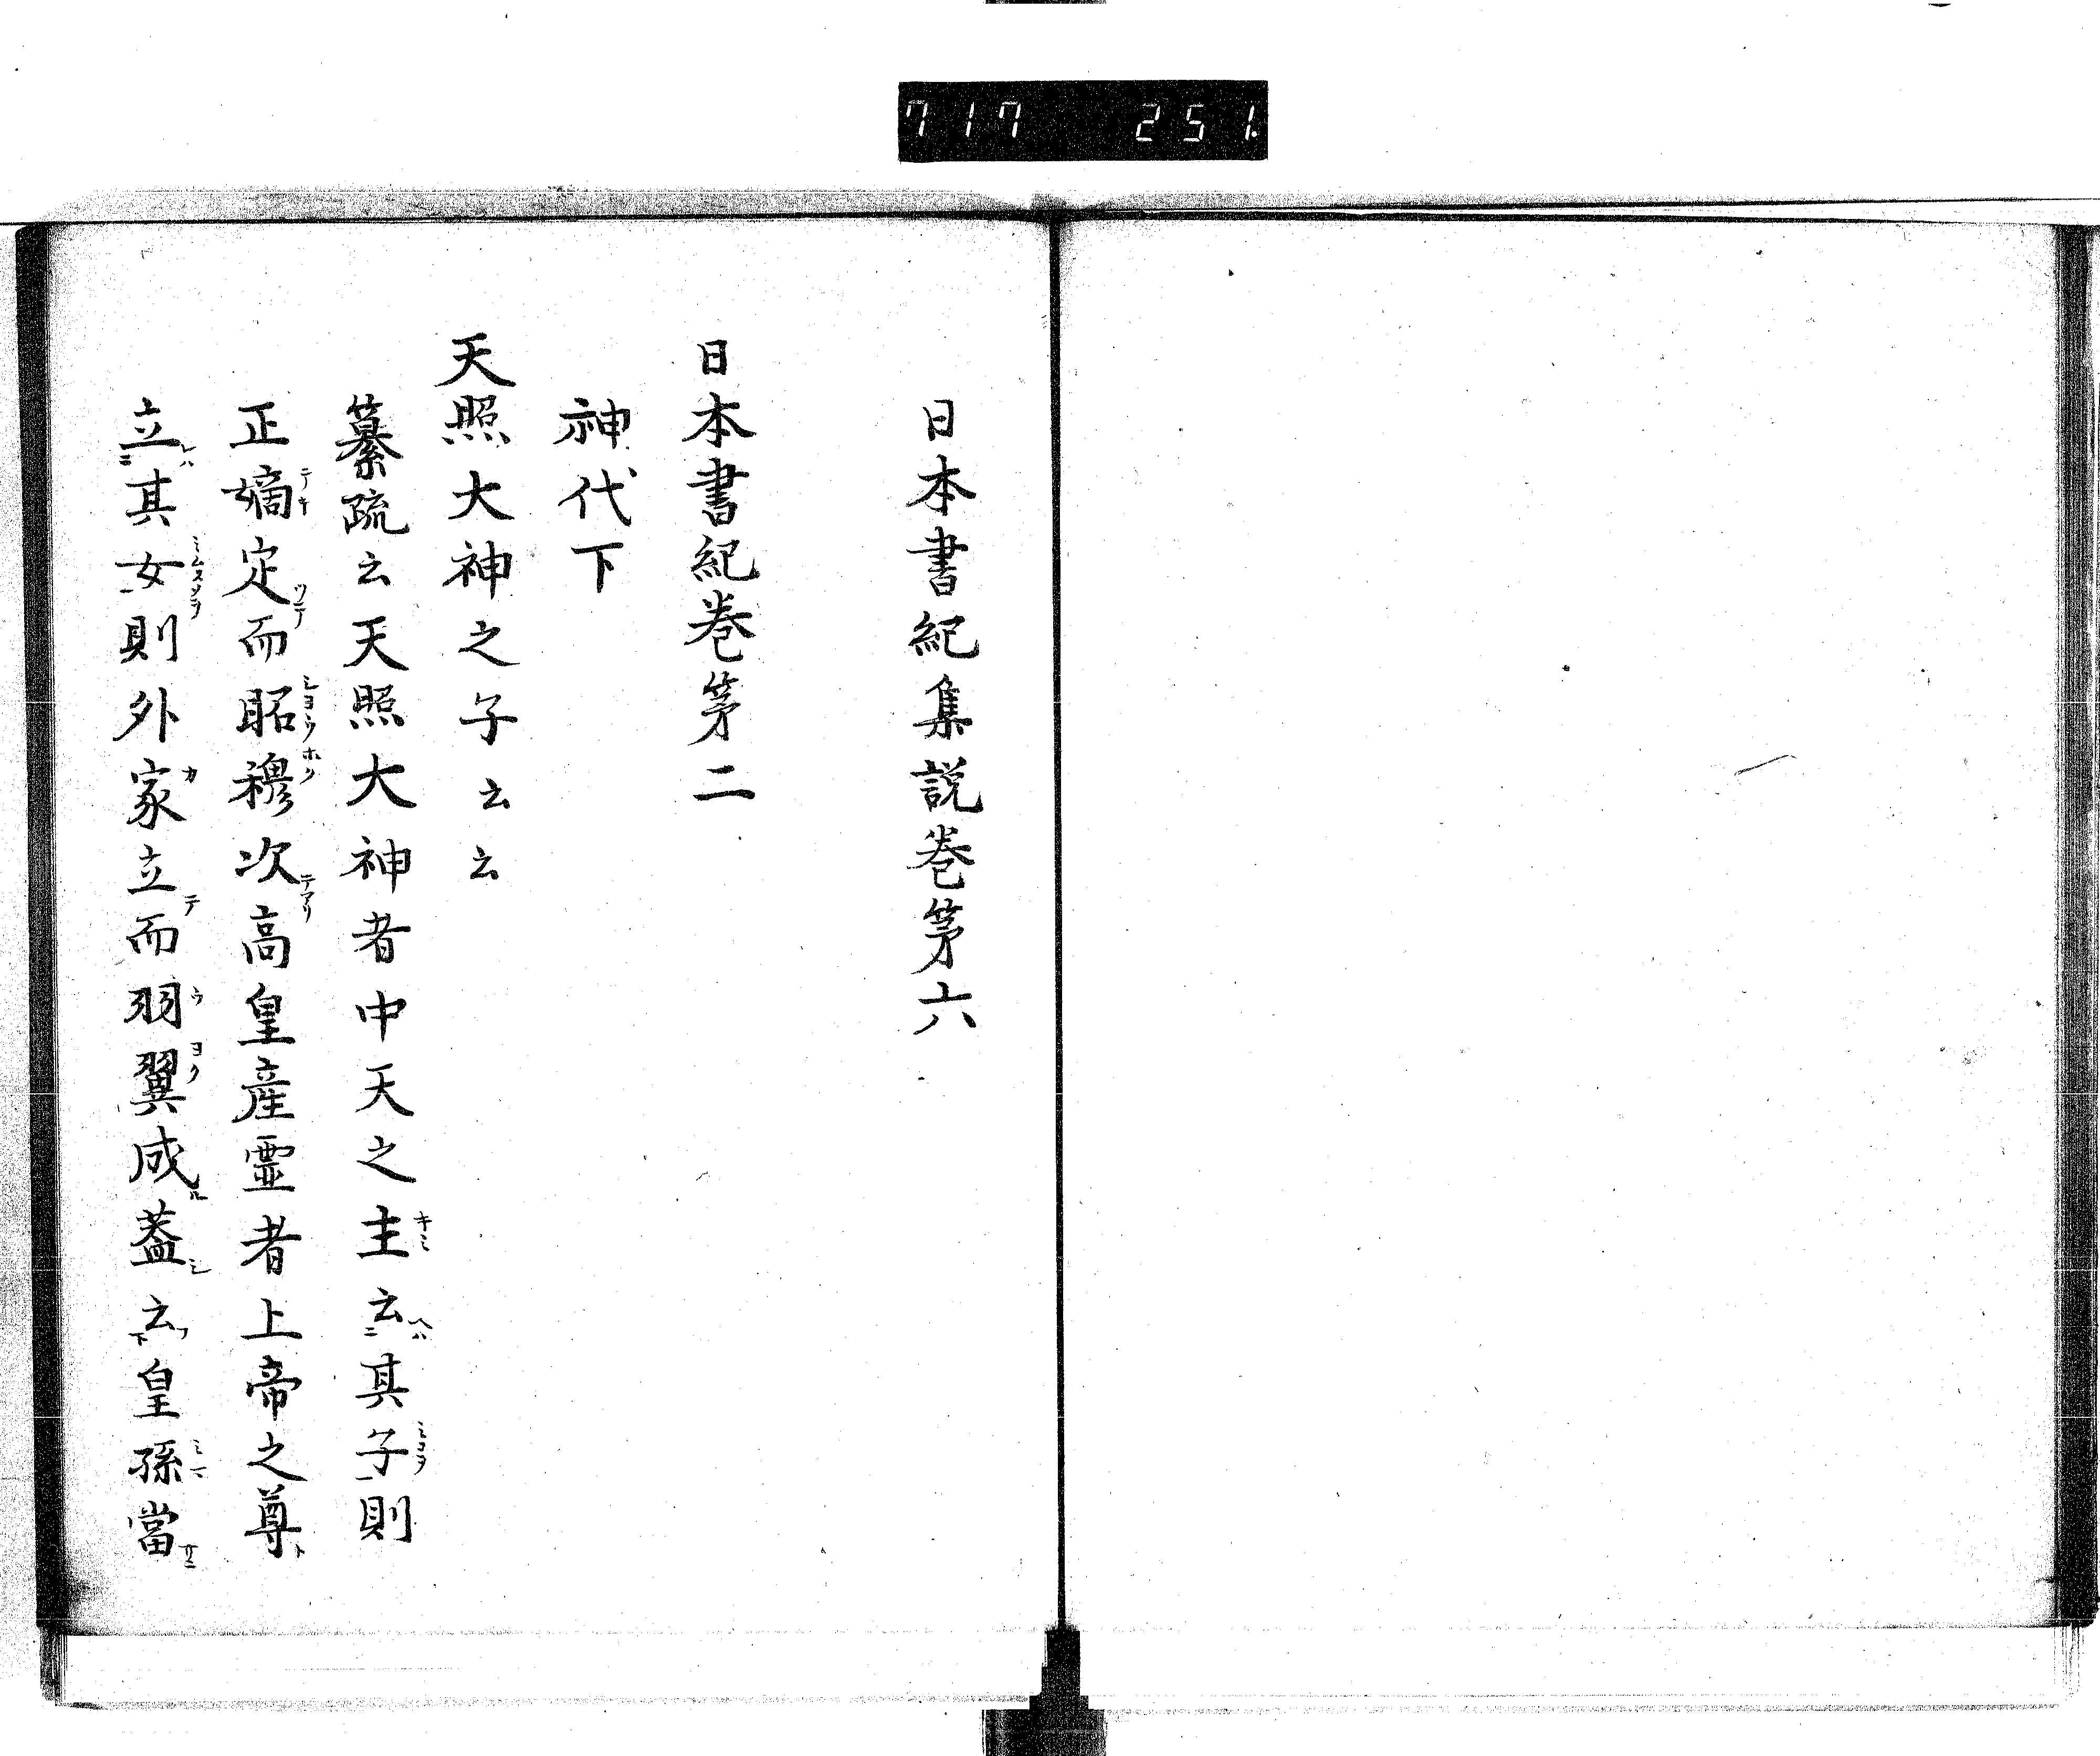 717 251
日本書紀集説巻第六
日本書紀巻第二
神代下
天照大神之子云云
纂疏云天照大神者中天之主云其子則
正嫡定而昭穆次高皇産霊者上帝之尊
立其女則外家立而羽翼成蓋云皇孫當